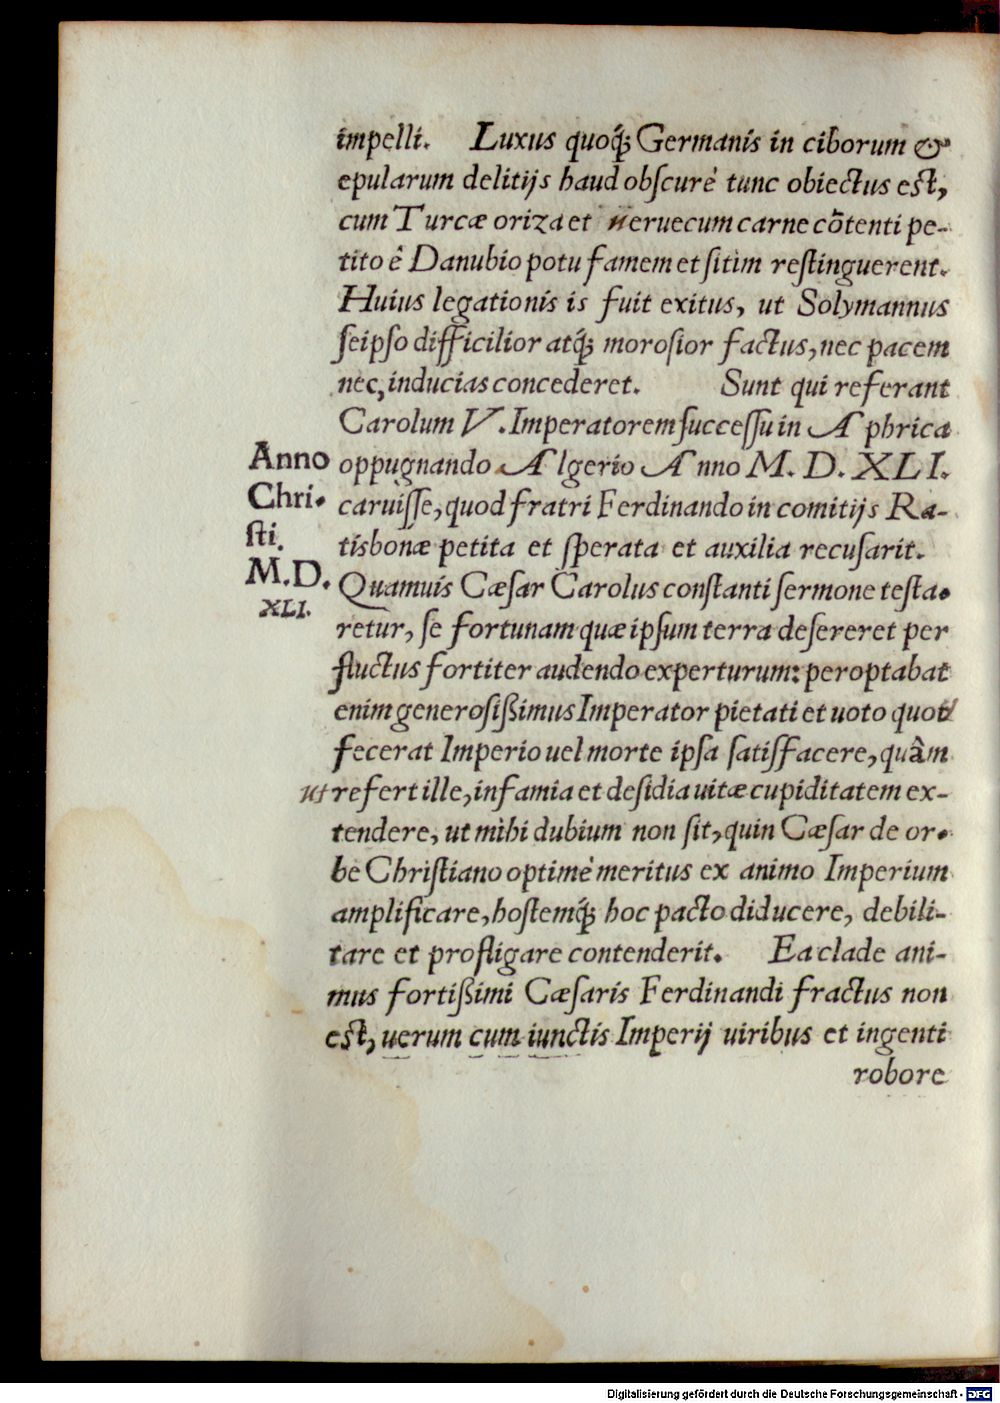 impelli. Luxus quoq́; Germanis in ciborum &
epularum delitijs haud obscurè tunc obiectus est,
cum Turcæ oriza et ueruecum carne cõtenti pe-
tito è Danubio potu famem et sitim restinguerent.
Huius legationis is fuit exitus, ut Solymannus
seipso difficilior atq́; morosior factus, nec pacem
nec, inducias concederet. Sunt qui referant
Carolum V. Imperatorem successu in Aphrica
oppugnando Algerio Anno M. D. XLI.
caruisse, quod fratri Ferdinando in comitijs Ra-
tisbonæ petita et sperata et auxilia recusarit.
Quamuis Cæsar Carolus constanti sermone testa-
retur, se fortunam quæ ipsum terra desereret per
fluctus fortiter audendo experturum: peroptabat
enim generosißimus Imperator pietati et uoto quod
fecerat Imperio uel morte ipsa satisfacere, quâm
ut refert ille, infamia et desidia uitæ cupiditatem ex-
tendere, ut mihi dubium non sit, quin Cæsar de or-
be Christiano optimè meritus ex animo Imperium
amplificare, hostemq́; hoc pacto diducere, debili-
tare et profligare contenderit. Ea clade ani-
mus fortißimi Cæsaris Ferdinandi fractus non
est, uerum cum iunctis Imperij uiribus et ingenti
robore
Anno
Chri-
sti.
M.D.
XLI.
Digitalisierung gefördert durch die Deutsche Forschungsgemeinschaft - DFG